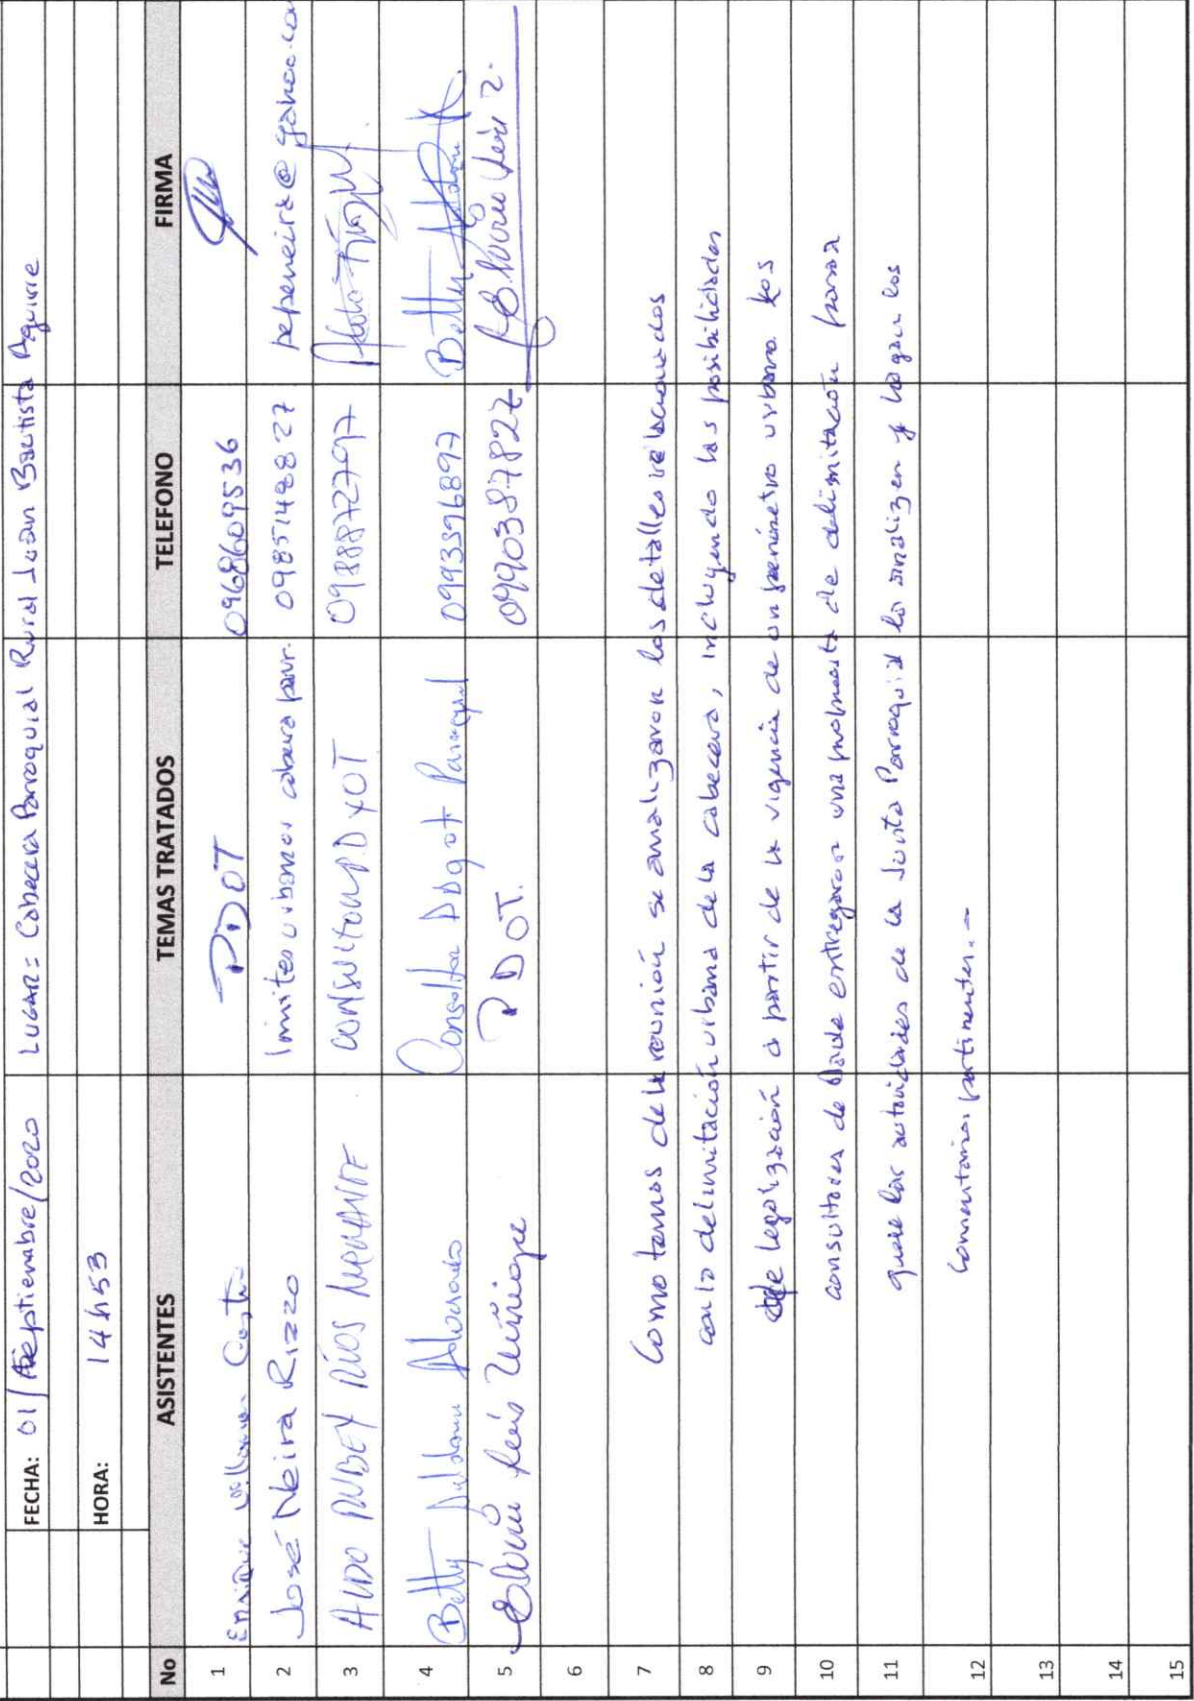 FECHA: 01/Septiembre/2020 LUGAR= Cabecera Parroquial Rural Juan Bautista Aguirre
HORA: 14h53
No ASISTENTES TEMAS TRATADOS TELEFONO FIRMA
1 Enrique Castro PDOT 0968609536
2 José Neira Rizzo limites urbanos cabecera parr. 0985148827 pepeneira@yahoo.co
3 ALDO RUBEY RÍOS CONSULTOR PDYOT 0988872797
4 Betty Alvarado Consultor PDyot Parroquial 0993396897 Betty
5 Elvira PDOT. 0990387827
6
7 Como temas de la reunión se analizaron los detalles relacionados
8 con la delimitación urbana de la cabecera, incluyendo las posibilidades
9 de legalización a partir de la vigencia de un perímetro urbano. Los
10 consultores de entregaron una propuesta de delimitación para
11 que las autoridades de la Junta Parroquial lo analizen y hagan los
12 comentarios pertinentes.-
13
14
15